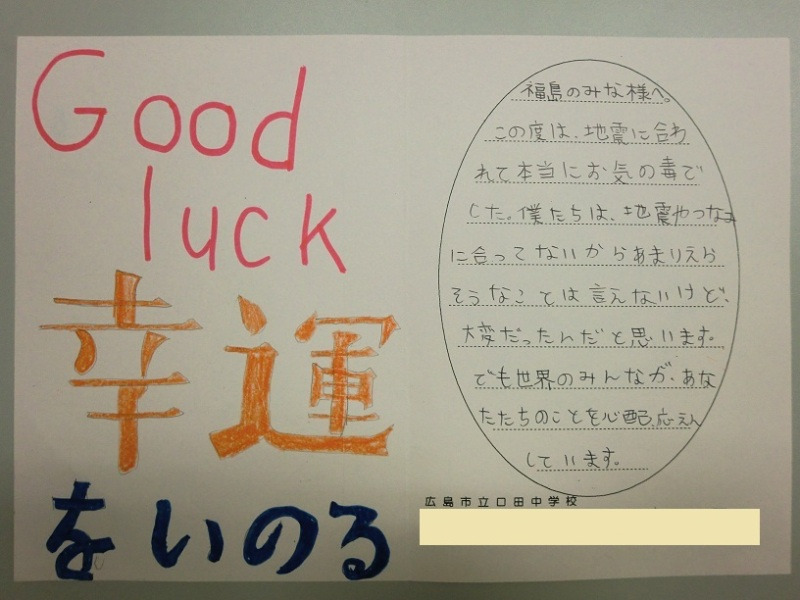 Good
luck
幸運
をいのる
福島のみな様へ。
この度は、地震に合わ
れて本当にお気の毒で
した。僕たちは、地震やつなみ
に合ってないからあまりえら
そうなことは言えないけど、
大変だったんだと思います。
でも世界のみんなが、あな
たたちのことを心配、応えん
しています。
広島市立口田中学校